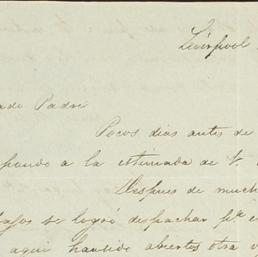 Liverpool
ado Padre
Pocos dias antes de
pondo a la estimada de V.
Despues de much
bajos se logró despachar pa.
aqui han sido abiertos otra v